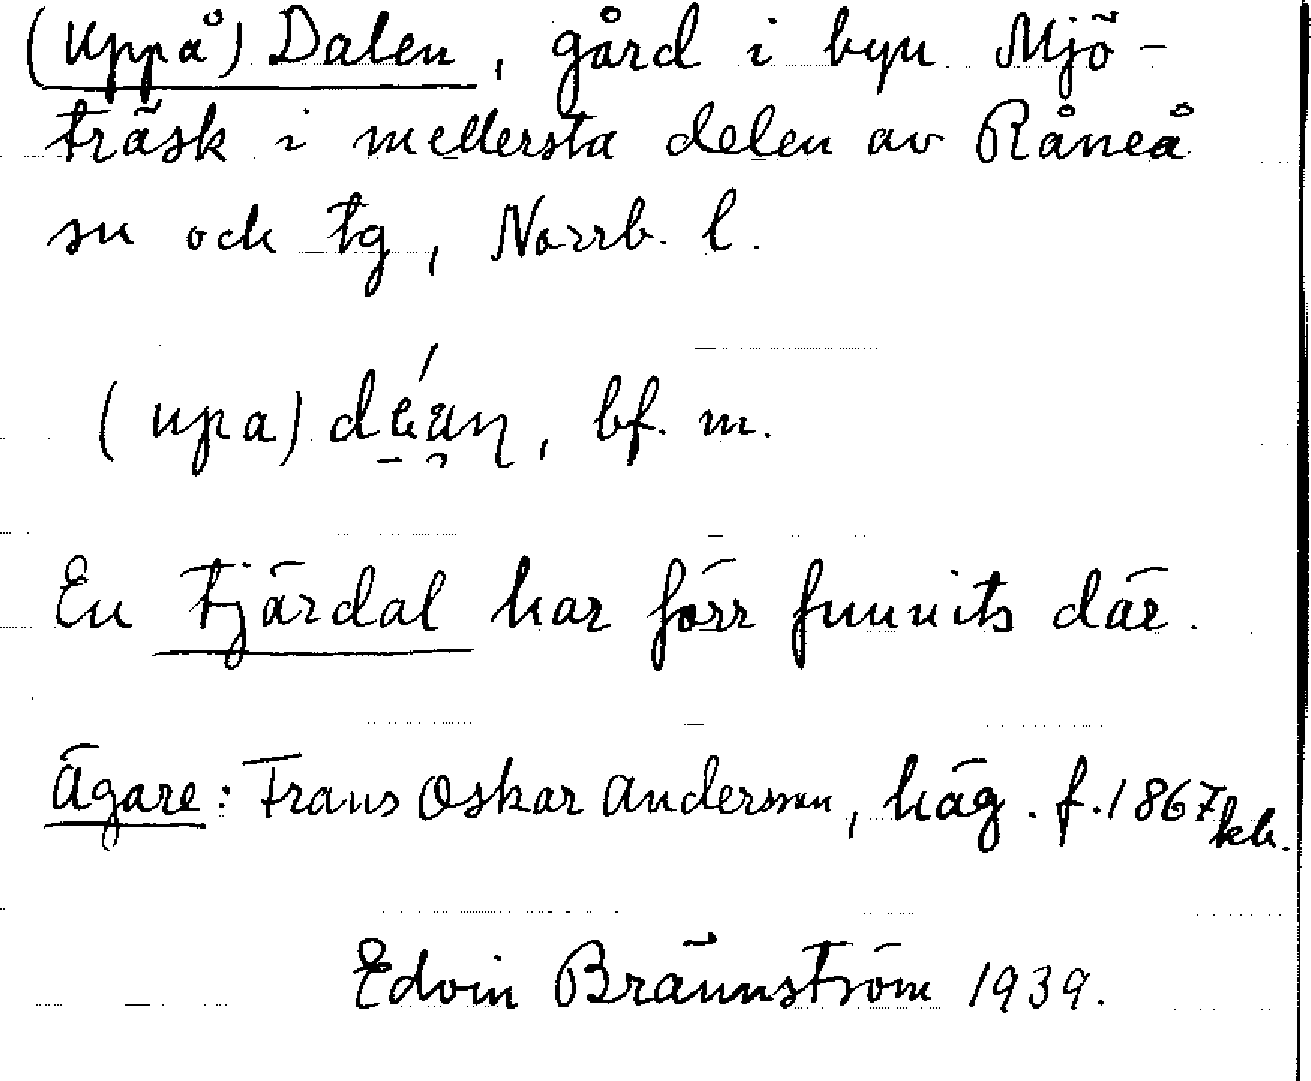 (Uppå) Dalen, gård i byn Mjö-
träsk i mellersta delen av Råneå
sn och tg, Norrb. l.
(upa) , bf. m.
En tjärdal har förr funnits där.
Ägare: Frans Oskar Andersson, häg. f. 1867 kh.
Edvin Brännström 1939.